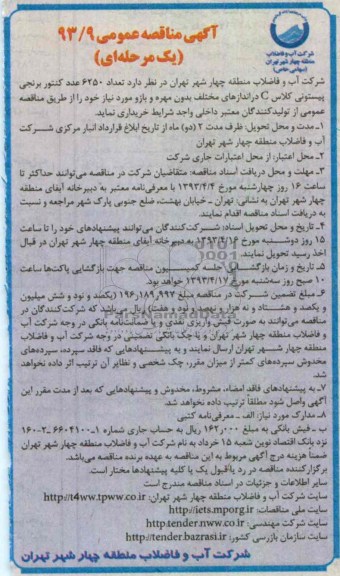 آگهی مناقصه عمومی ۹۳/۹
(یک مرحله‌ای)
شرکت آب و فاضلاب
منطقه چهار شهر تهران
(سهامی خاص)
شرکت آب و فاضلاب منطقه چهار شهر تهران در نظر دارد تعداد ۶۲۵۰ عدد کنتور برنجی
پیستونی کلاس C در اندازهای مختلف بدون مهره و بازو مورد نیاز خود را از طریق مناقصه
عمومی از تولیدکنندگان معتبر داخلی واجد شرایط خریداری نماید.
۱ـ مدت و محل تحویل: ظرف مدت ۲ (دو) ماه از تاریخ ابلاغ قرارداد انبار مرکزی شرکت
آب و فاضلاب منطقه چهار شهر تهران
۲ـ محل اعتبار: از محل اعتبارات جاری شرکت
۳ـ مهلت و محل دریافت اسناد مناقصه: متقاضیان شرکت در مناقصه می‌توانند حداکثر تا
ساعت ۱۶ روز چهارشنبه مورخ ۱۳۹۳/۴/۴ با معرفی‌نامه معتبر به دبیرخانه آبفای منطقه
چهار شهر تهران به نشانی: تهران ـ خیابان بهشت، ضلع جنوبی پارک شهر مراجعه و نسبت
به دریافت اسناد مناقصه اقدام نمایند.
۴ـ تاریخ و محل تحویل اسناد: شرکت‌کنندگان می‌توانند پیشنهادهای خود را تا ساعت
۱۵ روز دوشنبه مورخ ۱۳۹۳/۴/۱۶ به دبیرخانه آبفای منطقه چهار شهر تهران در قبال
اخذ رسید تحویل نمایند.
۵ـ تاریخ و زمان بازگشایی: جلسه کمیسیون مناقصه جهت بازگشایی پاکت‌ها ساعت
۱۰ صبح روز سه‌شنبه مورخ ۱۳۹۳/۴/۱۷ خواهد بود.
۶ـ مبلغ تضمین شرکت در مناقصه مبلغ ۱۹۶٫۱۸۹٫۹۹۷ (یکصد و نود و شش میلیون
و یکصد و هشتاد و نه هزار و نهصد و نود و هفت) ریال می‌باشد که شرکت‌کنندگان در
مناقصه می‌توانند به صورت فیش واریزی نقدی و یا ضمانت‌نامه بانکی در وجه شرکت آب
و فاضلاب منطقه چهار شهر تهران و یا چک بانکی تضمینی در وجه شرکت آب و فاضلاب
منطقه چهار شهر تهران ارسال نمایند و به پیشنهادهایی که فاقد سپرده، سپرده‌های
مخدوش سپرده‌های کمتر از میزان مقرر، چک شخصی و نظایر آن ترتیب اثر داده نخواهد
شد.
۷ـ به پیشنهادهای فاقد امضاء، مشروط، مخدوش و پیشنهادهایی که بعد از مدت مقرر این
آگهی واصل شود مطلقاً ترتیب داده نخواهد شد.
۸ـ مدارک مورد نیاز: الف ـ معرفی‌نامه کتبی
ب ـ فیش بانکی به مبلغ ۱۶۲٫۰۰۰ ریال به حساب جاری شماره ۱ـ۶۶۰۴۱۰۰ـ۲ـ۱۶۰
نزد بانک اقتصاد نوین شعبه ۱۵ خرداد به نام شرکت آب و فاضلاب منطقه چهار شهر تهران
ضمناً هزینه درج آگهی مربوط به این مناقصه به عهده برنده مناقصه می‌باشد.
برگزارکننده مناقصه در رد یا قبول یک یا کلیه پیشنهادها مختار است.
سایر اطلاعات و جزئیات در اسناد مناقصه مندرج است
سایت شرکت آب و فاضلاب منطقه چهار شهر تهران: http://t4ww.tpww.co.ir
سایت ملی مناقصات: http://iets.mporg.ir
سایت شرکت مهندسی: http.tender.nww.co.ir
سایت سازمان بازرسی کشور: http://tender.bazrasi.ir
شرکت آب و فاضلاب منطقه چهار شهر تهران